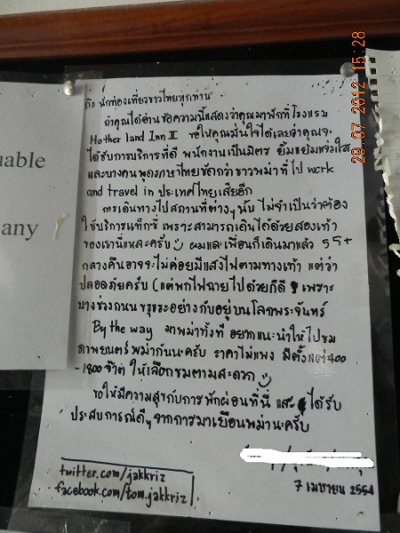 28 07 2012 15:28
uable
any
ถึง นักท่องเที่ยวชาวไทยทุกท่าน
ถ้าคุณได้อ่านข้อความนี้แสดงว่าคุณมาพักที่โรงแรม
Mother land Inn II ขอให้คุณมั่นใจได้เลยว่าคุณจะ
ได้รับการบริการที่ดี พนักงานเป็นมิตร ยิ้มแย้มแจ่มใส
และบางคน พูดภาษาไทยชัดกว่าชาวพม่าที่ไป work
and travel in ประเทศไทยเสียอีก
การเดินทางไปสถานที่ต่างๆ นั้น ไม่จำเป็นว่าต้อง
ใช้บริการแท็กซี่ เพราะสามารถเดินได้ด้วยสองเท้า
ของเรานี่แหละครับ ผมและเพื่อนก็เดินมาแล้ว 55+
กลางคืนอาจจะไม่ค่อยมีแสงไฟตามทางเท้า แต่ว่า
ปลอดภัยครับ (แต่พกไฟฉายไปด้วยก็ดี เพราะ
บางช่วงถนน ขรุขระอย่างกับอยู่บนโลกพระจันทร์
By the way มาพม่าทั้งที อยากแนะนำให้ไปชม
ภาพยนตร์ พม่ากันนะครับ ราคาไม่แพง มีตั้งแต่ 400
-1800 จ๊าต ให้เลือกชมตามสะดวก
ขอให้มีความสุขกับการพักผ่อนที่นี่ และ ได้รับ
ประสบการณ์ดีๆ จากการมาเยือนพม่านะครับ
7 เมษายน 2554
twitter.com/jakkriz
facebook.com/tom.jakkriz